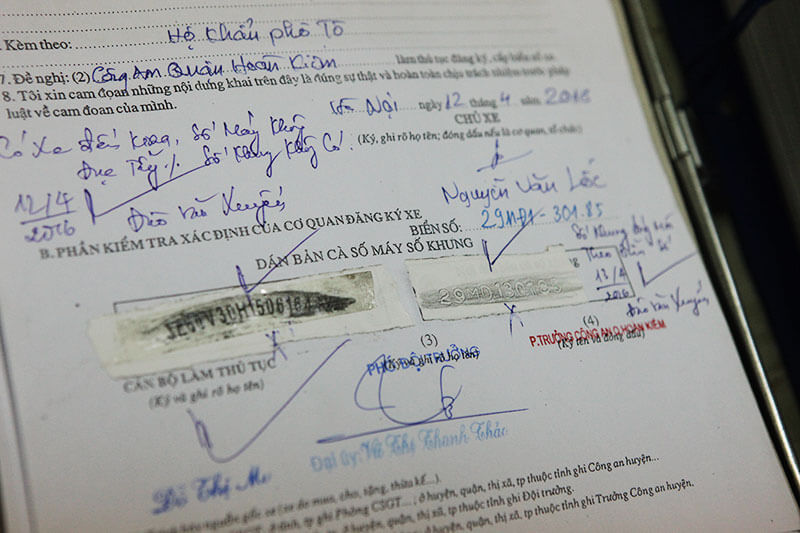 Kèm theo: Hộ khẩu phô Tô
7. Đề nghị: (2) Công An Quận Hoàn Kiếm làm thủ tục đăng ký, cấp biển số xe
8. Tôi xin cam đoạn những nội dưng khai trên đây là đúng sự thật và hoàn toàn chịu trách nhiệm trước pháp
luật về cam đoan của mình.
Hà Nội ngày 12 tháng 4 năm 2016
CHỦ XE
(Ký, ghi rõ họ tên; đóng dấu nếu là cơ quan, tổ chức)
Số Máy không
Đục Tẩy Số Khung Không Có.
12/4
2016
Đào Văn Xuyến
Nguyễn Văn Lốc
B. PHẦN KIỂM TRA XÁC ĐỊNH CỦA CƠ QUAN ĐĂNG KÝ XE
BIỂN SỐ: 29MĐ1-301.85
DÁN BẢN CÀ SỐ MÁY SỐ KHUNG
Số Khung đóng mới
Theo Biển Số
12/4
2016
Đào Văn Xuyến
29MD130185
CÁN BỘ LÀM THỦ TỤC
(Ký và ghi rõ họ tên)
(3)
PHÓ ĐỘI TRƯỞNG
(Ký và ghi rõ họ tên)
(4)
P.TRƯỞNG CÔNG AN Q.HOÀN KIẾM
(Ký tên và đóng dấu)
Đại úy: Vũ Thị Thanh Thảo
Đỗ Thị Mơ
ở huyện, quận, thị xã, tp thuộc tỉnh ghi Công an huyện...
ở huyện, quận, thị xã, tp thuộc tỉnh ghi Đội trưởng.
ở huyện, quận, thị xã, tp thuộc tỉnh ghi Trưởng Công an huyện.